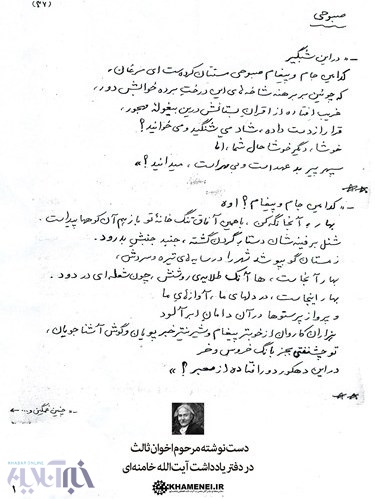 (۳۷)
صبوحی
- « در این شبگیر
کدامین جام و پیغام صبوحی مستتان کرده ست ای مرغان،
که چونین بر برهنه شاخه‌های این درختِ برده خوابش دور،
غریب افتاده از اقران بستانش درین بیغولهٔ مهجور،
قرار از دست داده، شاد می شنگید و می خوانید؟
خوشا، دیگر خوشا حال شما، اما
سپهر پیر بد عهد است و بی مهرست، میدانید؟ »
***
- « کدامین جام و پیغام؟ اوه
بهار، آنجا نگه کن، با همین آفاق تنگ خانهٔ تو باز هم آن کوهها پیداست.
شنل برفینه‌شان دستار گردن گشته، جنبد جنبش بدرود.
زمستان گو بپوشد شهر را در سایه‌های تیره و سردش،
بهار آنجاست، ها آنک طلایهٔ روشنش، چون شعله‌ای در دود.
بهار اینجاست، در دلهای ما، آوازهای ما
و پرواز پرستوها در آن دامانِ ابرآلود
هزاران کاروان از خوبتر پیغام و شیرینتر خبر پویان و گوش آشنا جویان،
تو چشنفتی بجز بانگ خروس و خر
در این دهکور دور افتاده از معبر؟ »
***
← چنین غمگین و ...
دست‌نوشته مرحوم اخوان ثالث
در دفتر یادداشت آیت‌الله خامنه‌ای
KHAMENEI.IR
خبرآنلاین
KHABAR ONLINE
۱